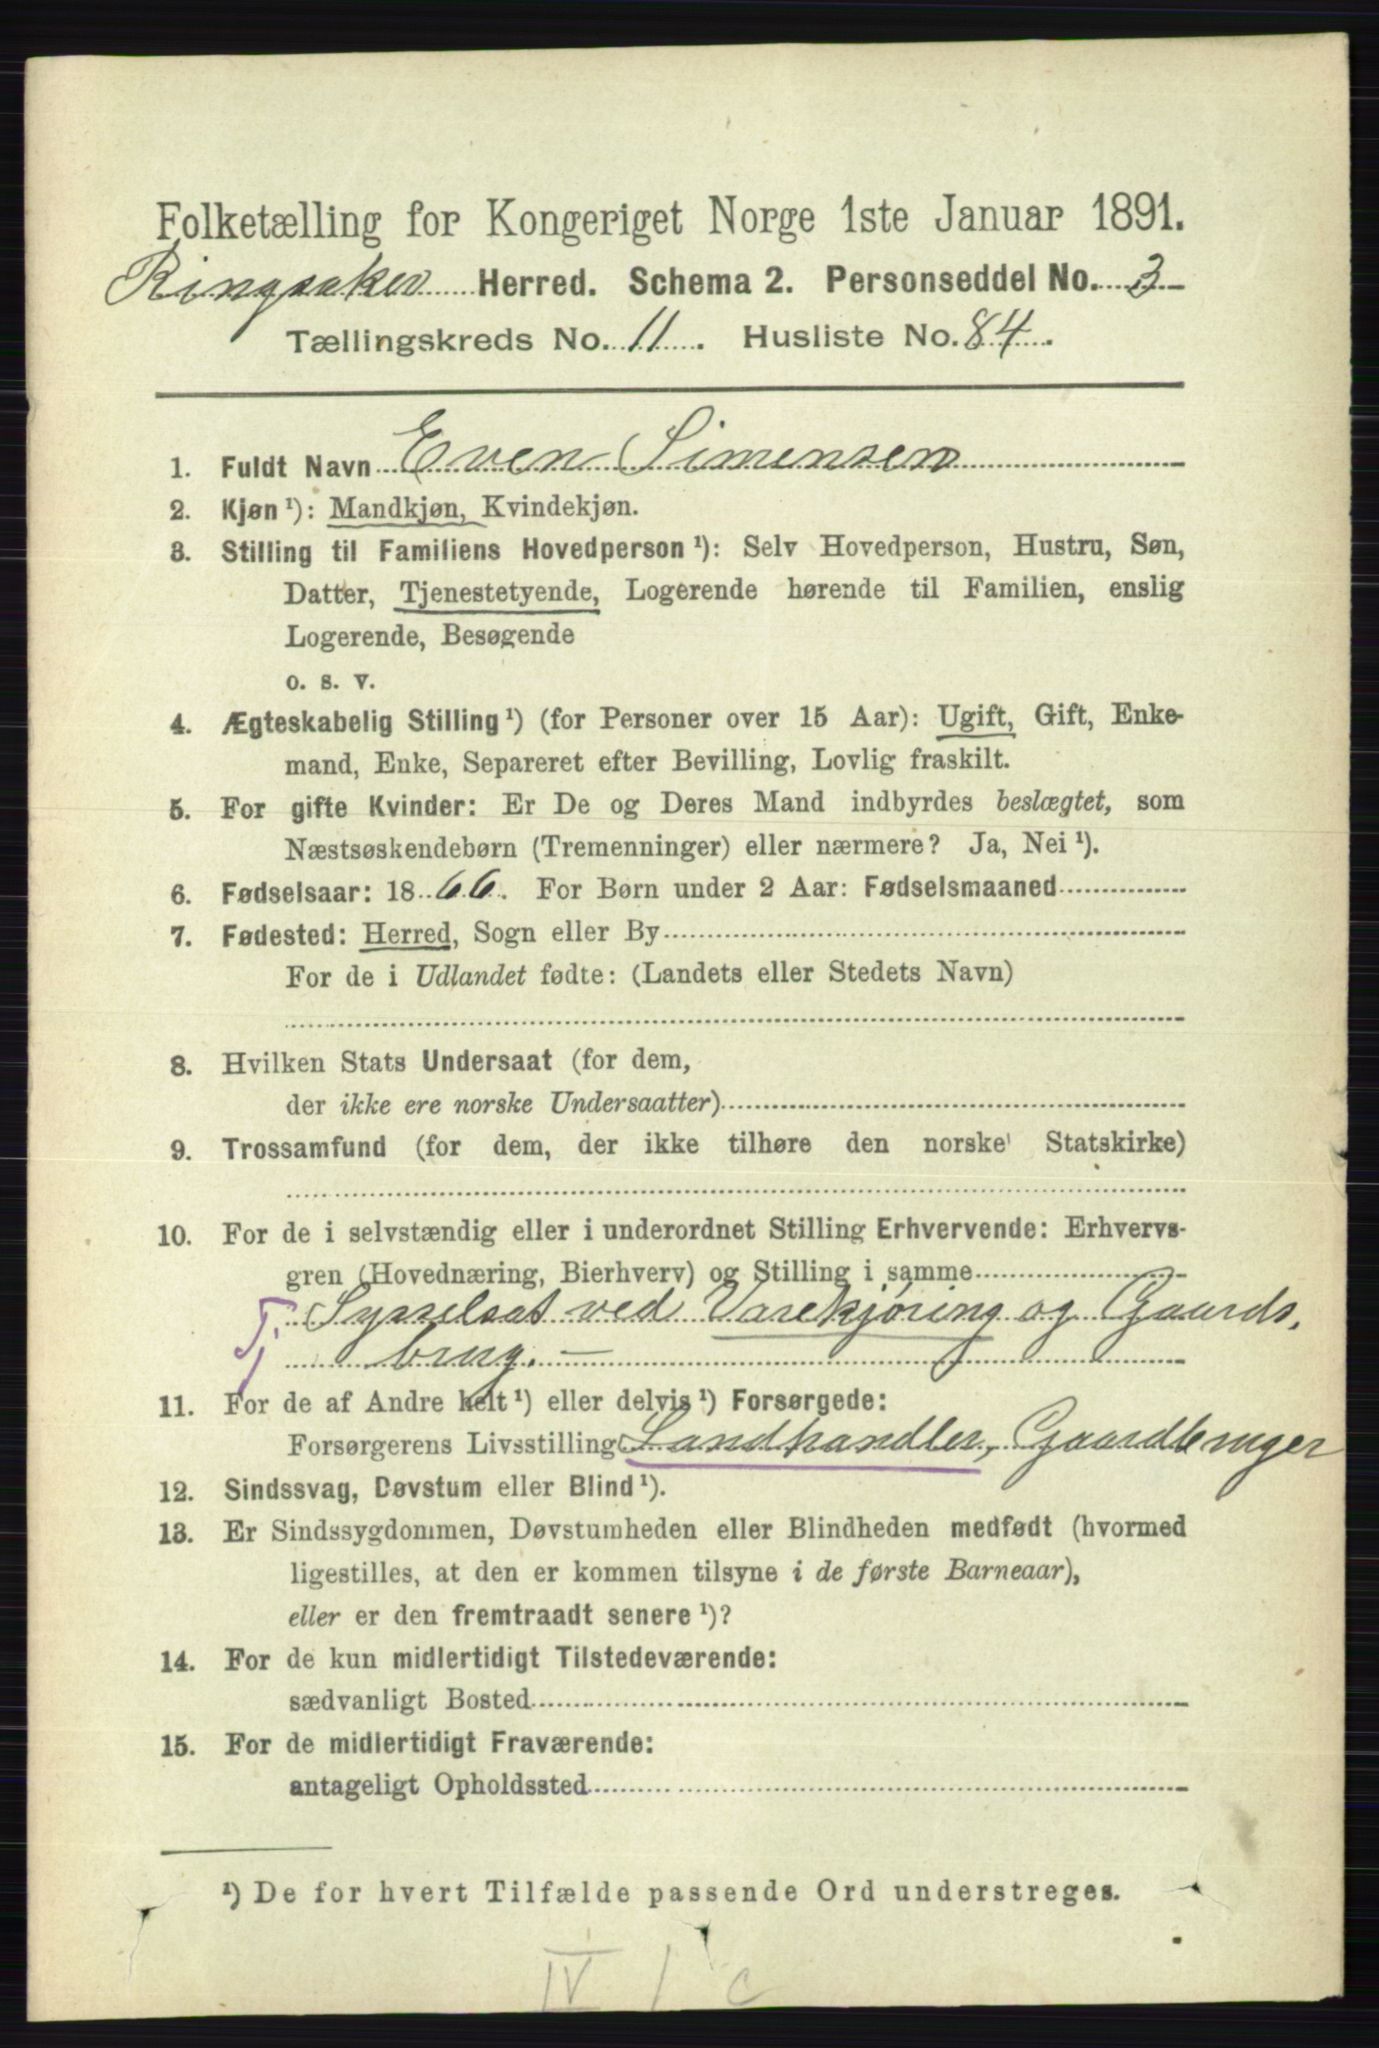 Folketælling for Kongeriget Norge 1ste Januar 1891.
Ringsaker Herred. Schema 2. Personseddel No. 3
Tællingskreds No. 11. Husliste No. 84.
1. Fuldt Navn Even Simensen
2. Kjøn ¹): Mandkjøn, Kvindekjøn.
3. Stilling til Familiens Hovedperson ¹): Selv Hovedperson, Hustru, Søn,
Datter, Tjenestetyende, Logerende hørende til Familien, enslig
Logerende, Besøgende
o. s. v.
4. Ægteskabelig Stilling ¹) (for Personer over 15 Aar): Ugift, Gift, Enke-
mand, Enke, Separeret efter Bevilling, Lovlig fraskilt.
5. For gifte Kvinder: Er De og Deres Mand indbyrdes beslægtet, som
Næstsøskendebørn (Tremenninger) eller nærmere? Ja, Nei ¹).
6. Fødselsaar: 1866. For Børn under 2 Aar: Fødselsmaaned
7. Fødested: Herred, Sogn eller By
For de i Udlandet fødte: (Landets eller Stedets Navn)
8. Hvilken Stats Undersaat (for dem,
der ikke ere norske Undersaatter)
9. Trossamfund (for dem, der ikke tilhøre den norske Statskirke)
10. For de i selvstændig eller i underordnet Stilling Erhvervende: Erhvervs-
gren (Hovednæring, Bierhverv) og Stilling i samme
Tj. Sysselsat ved Varekjøring og Gaards,
brug. —
11. For de af Andre helt ¹) eller delvis ¹) Forsørgede:
Forsørgerens Livsstilling Landhandler, Gaardbruger
12. Sindssvag, Døvstum eller Blind ¹).
13. Er Sindssygdommen, Døvstumheden eller Blindheden medfødt (hvormed
ligestilles, at den er kommen tilsyne i de første Barneaar),
eller er den fremtraadt senere ¹)?
14. For de kun midlertidigt Tilstedeværende:
sædvanligt Bosted
15. For de midlertidigt Fraværende:
antageligt Opholdssted
¹) De for hvert Tilfælde passende Ord understreges.
IV 1 c